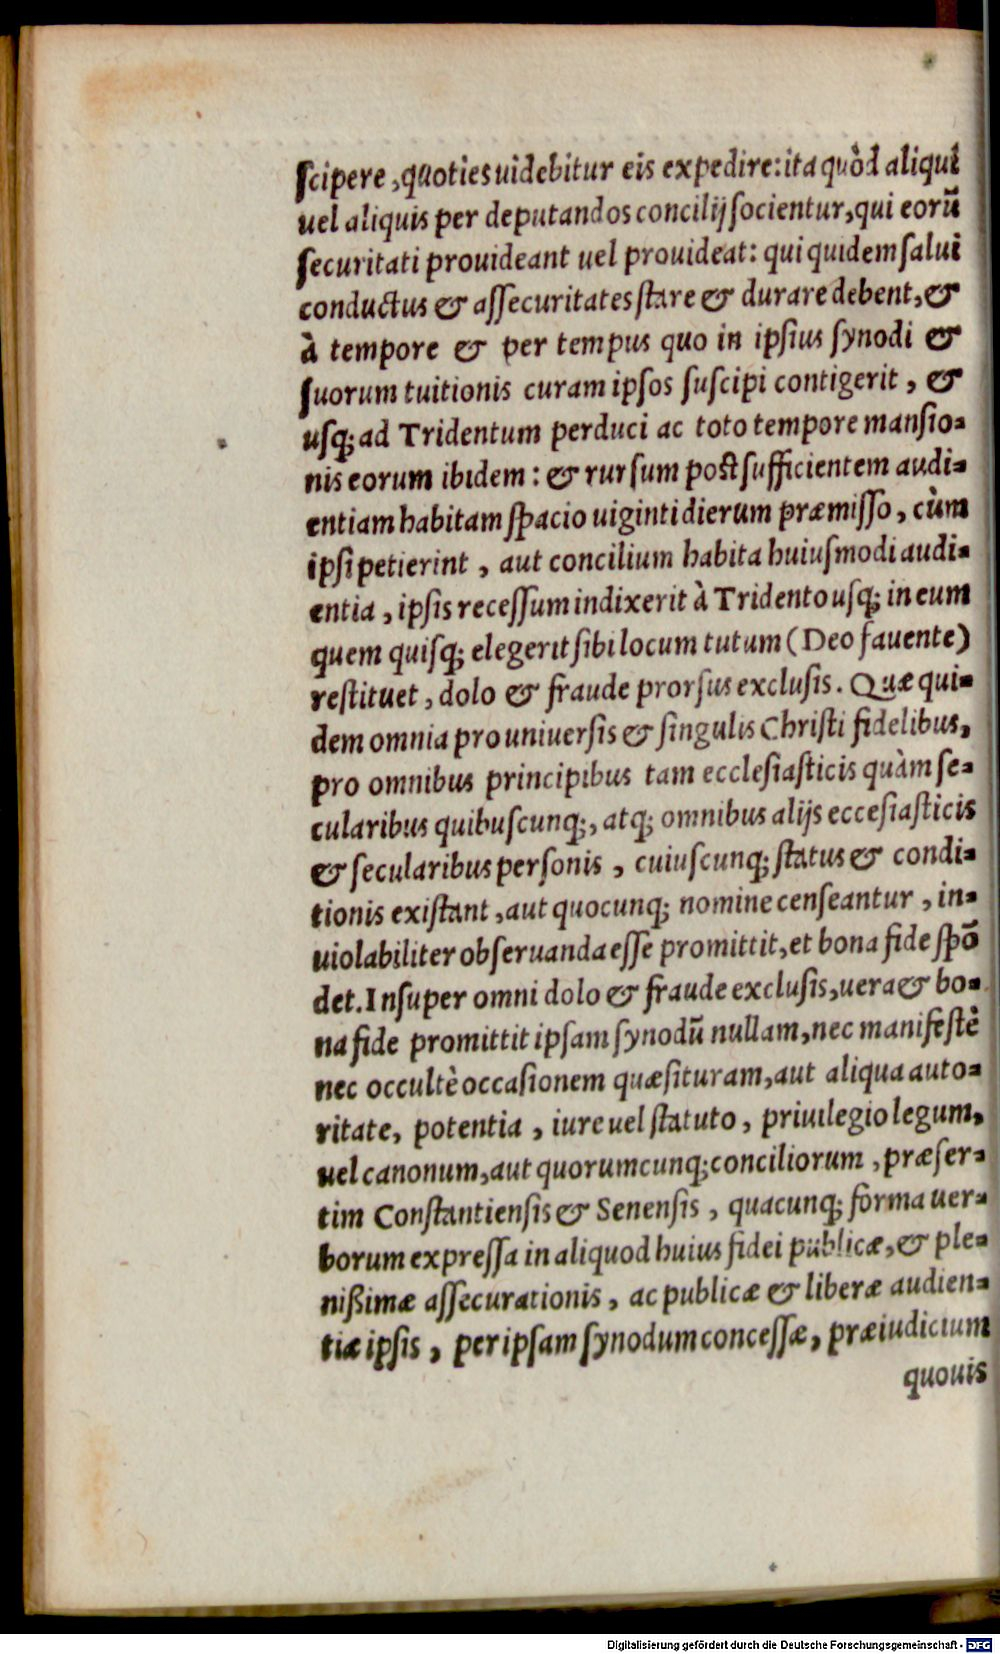 ſcipere, quoties uidebitur eis expedire: ita quòd aliqui
uel aliquis per deputandos concilij ſocientur, qui eorũ
ſecuritati prouideant uel prouideat: qui quidem ſalui
conductus & aſſecuritates ſtare & durare debent, &
à tempore & per tempus quo in ipſius ſynodi &
ſuorum tuitionis curam ipſos ſuſcipi contigerit, &
uſq; ad Tridentum perduci ac toto tempore manſio-
nis eorum ibidem: & rurſum poſt ſufficientem audi-
entiam habitam ſpacio uiginti dierum præmiſſo, cùm
ipſi petierint, aut concilium habita huiuſmodi audi-
entia, ipſis receſſum indixerit à Tridento uſq; in eum
quem quiſq; elegerit ſibi locum tutum (Deo fauente)
reſtituet, dolo & fraude prorſus excluſis. Quæ qui-
dem omnia pro uniuerſis & ſingulis Chriſti fidelibus,
pro omnibus principibus tam eccleſiaſticis quàm ſe-
cularibus quibuſcunq;, atq; omnibus alijs ecceſiaſticis
& ſecularibus perſonis, cuiuſcunq; ſtatus & condi-
tionis exiſtant, aut quocunq; nomine cenſeantur, in-
uiolabiliter obſeruanda eſſe promittit, et bona fide ſpõ
det. Inſuper omni dolo & fraude excluſis, uera & bo-
na fide promittit ipſam ſynodũ nullam, nec manifeſtè
nec occultè occaſionem quæſituram, aut aliqua auto-
ritate, potentia, iure uel ſtatuto, priuilegio legum,
uel canonum, aut quorumcunq; conciliorum, præſer-
tim Conſtantienſis & Senenſis, quacunq; forma uer-
borum expreſſa in aliquod huius fidei publicæ, & ple-
nißimæ aſſecurationis, ac publicæ & liberæ audien-
tiæ ipſis, per ipſam ſynodum conceſſæ, præiudicium
quouis
Digitalisierung gefördert durch die Deutsche Forschungsgemeinschaft - DFG